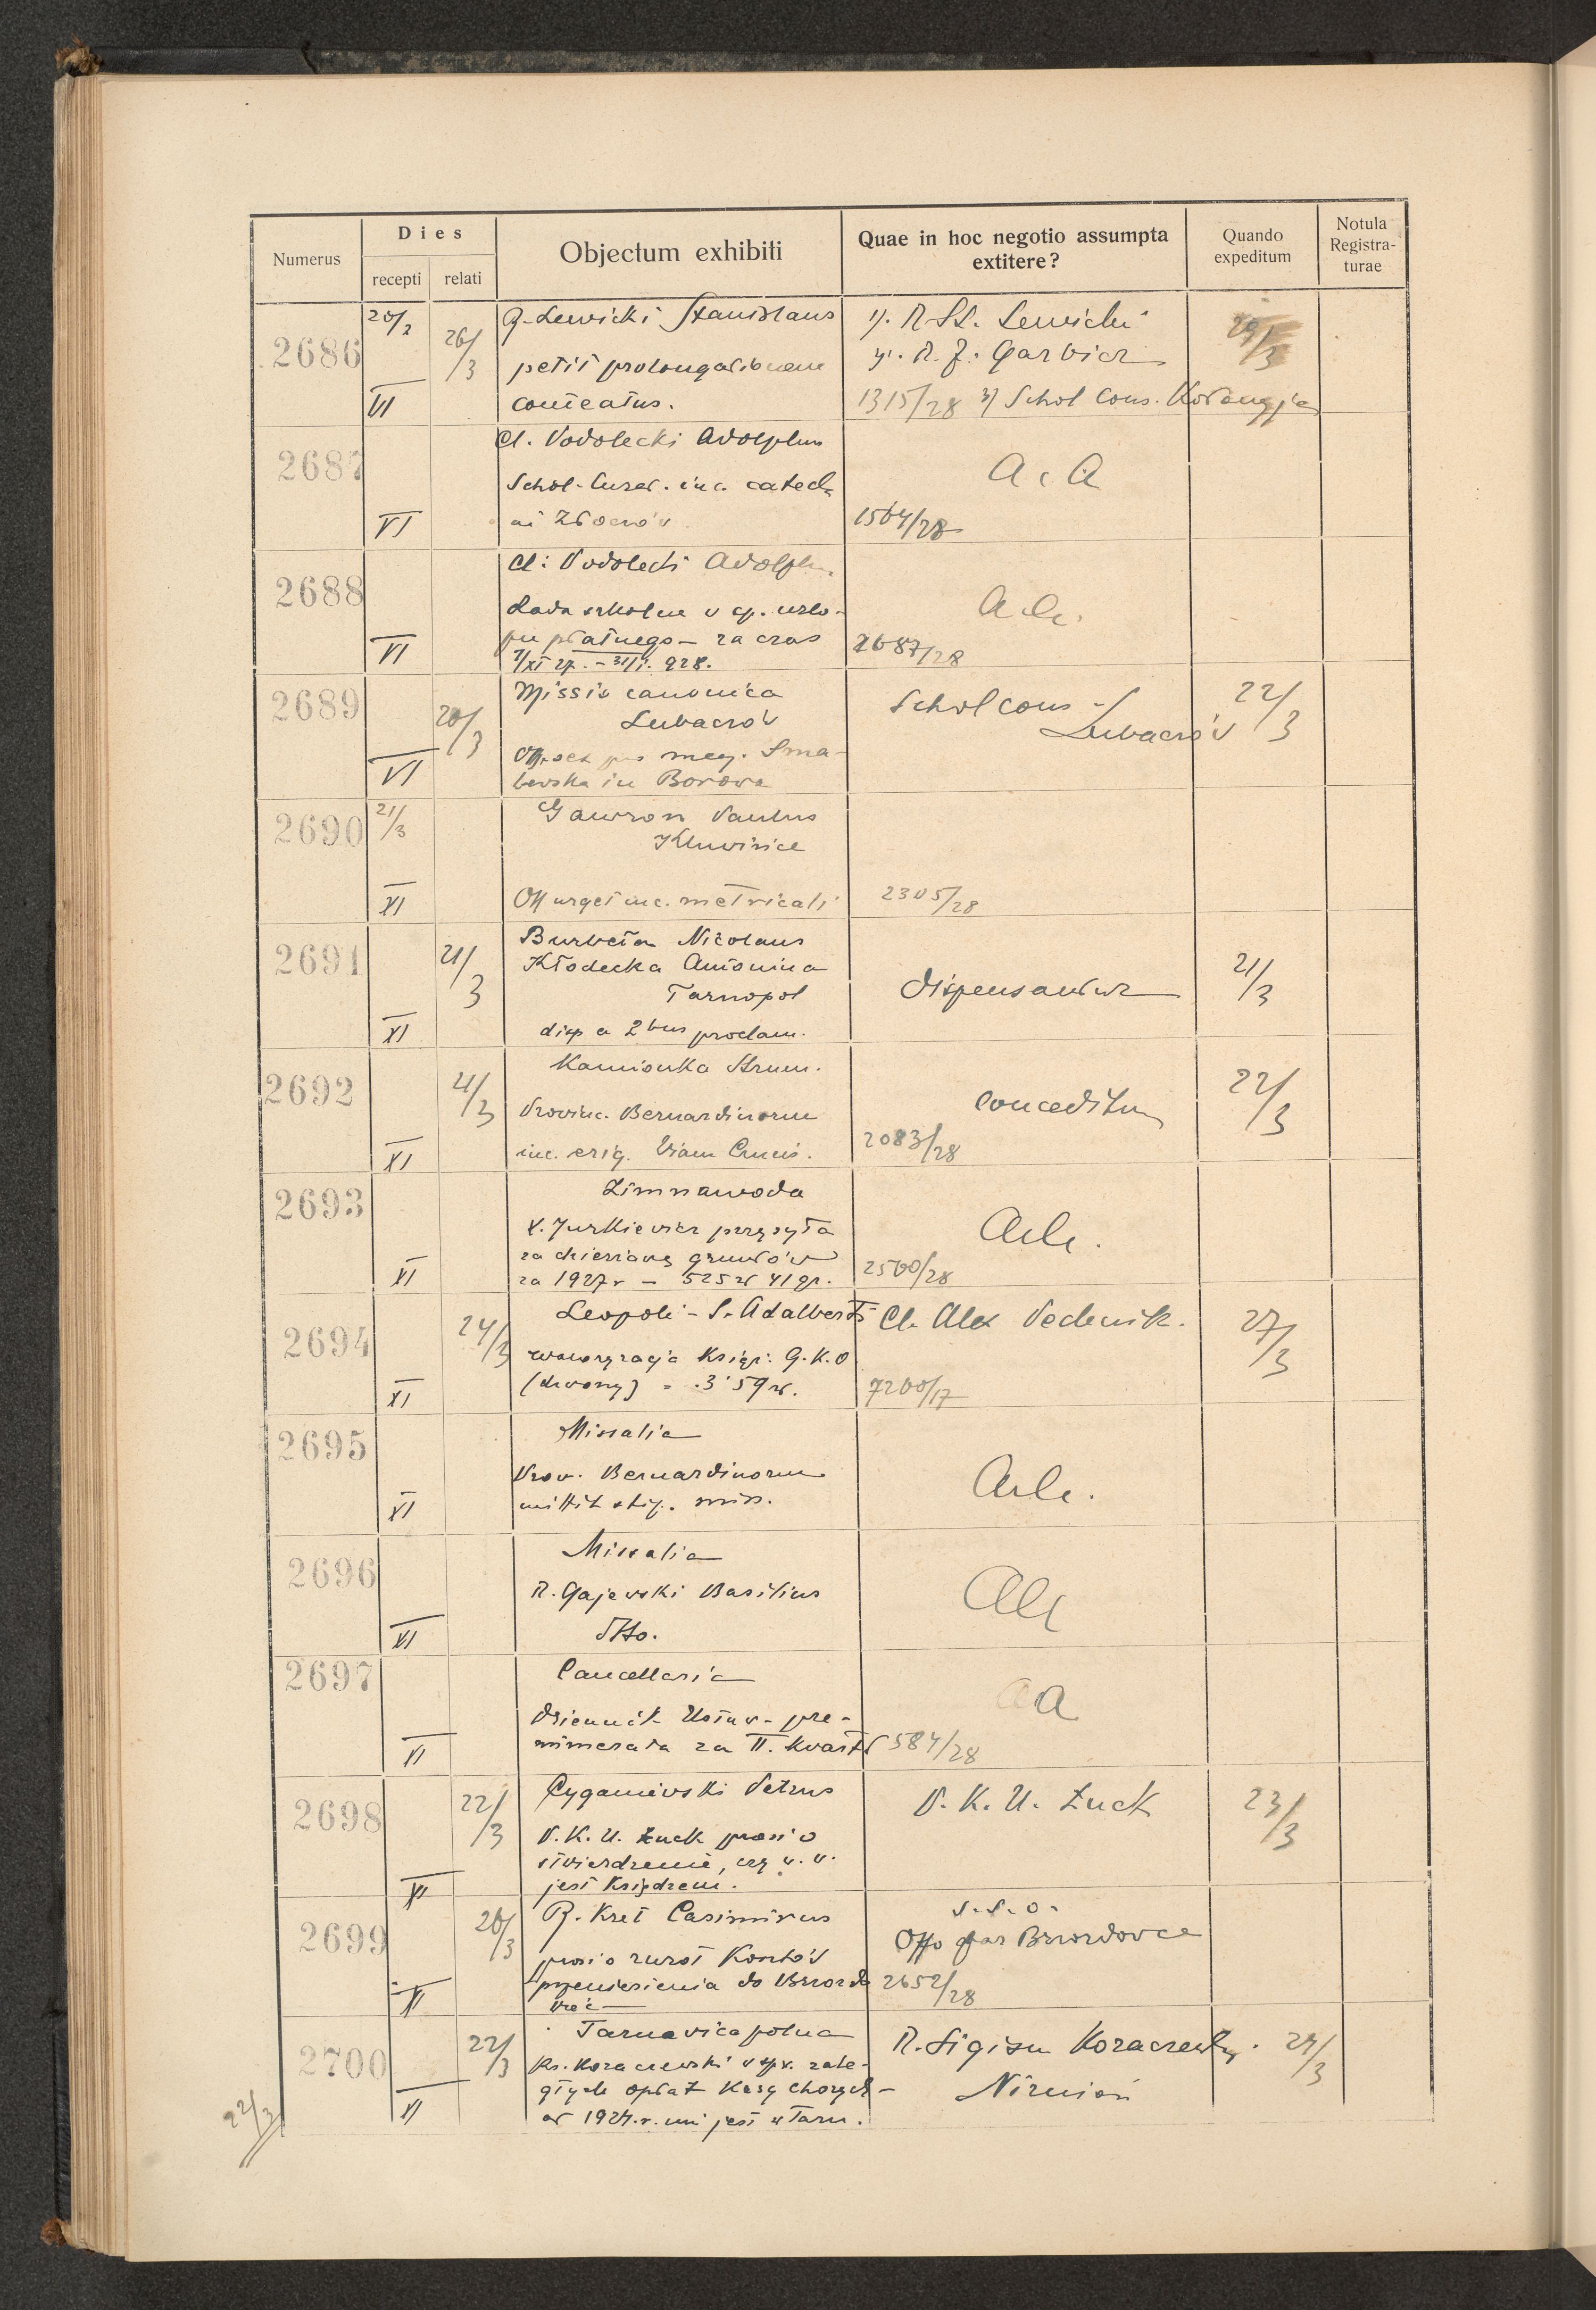 Numerus
Dies
recepti
relati
Objectum exhibiti
Quae in hoc negotio assumpta extitere?
Quando expeditum
Notula Registra-turae
2686
20/3
26/3
VI
R. Lewicki Stanislaus
petit prolongationem
comeatus.
1/. R St. Lewicki
R. J. Garbicz
1315/28 3/ Schol Cons.
29/3
2687
VI
Cl. Podolecki Adolphus
Schol. Curat. inc. catech
in Złoczów
A. A
1564/28
2688
VI
Cl. Podolecki Adolph.
Rada szkolna w sp. urlo-
pu płatnego - za czas
1/XI 27. - 31/1. 928.
A. A.
2687/28
2689
20/3
VI
Missio canonica
Lubaczów
Off. pro
in Borowa
Schol cons -
Lubaczów
22/3
2690
21/3
XI
Gawron Paulus
Kluwińce
Off urget inc. metricali
2305/28
2691
21/3
XI
Burbela Nicolaus
Kłodecka Antonina
Tarnopol
disp a 2bus proclam.
Dispensantur
21/3
2692
21/3
XI
Kamionka Strum.
Provinc. Bernardinorum
inc. erig. Viam Crucis.
2083/28
conceditur
22/3
2693
XI
Zimnawoda
X. Jurkiewicz przysyła
za dzierżawę gruntów
za 1927 r - 525 zł 41 gr.
A. A.
2560/28
2694
24/3
XI
Leopoli - S. Adalberti
waloryzacja Książ. G.K.O
(dzwony) = 3'59 zł.
Cl. Alex Pechnik.
7200/17
27/3
2695
XI
Missalia
Prov. Bernardinorum
mittit stip. miss.
A. A.
2696
VI
Missalia
R. Gajewski Basilius
dtto.
AA
2697
VI
Cancellaria
Dziennik Ustaw - pre-
numerata za II. kwartł
584/28
aa
2698
22/3
XI
Cyganiewski Petrus
P. K. U. Łuck prosi o
stwierdzenie, czy w. w.
jest Księdzem.
P. K. U. Łuck
23/3
2699
20/3
VI
R. Kret Casimirus
prosi o zwrot kosztów
przeniesienia do Brzozdo
wiec
s. s. o.
Offo par Brzozdowce
2652/28
2700
22/3
VI
Tarnawica polna
Ks. Koraczewski w spr. zale-
głych opłat Kasy Chorych -
od 1924.r. uni jest w Tarn.
R. Sigism Koraczewski.
Nizniów
24/3
22/3